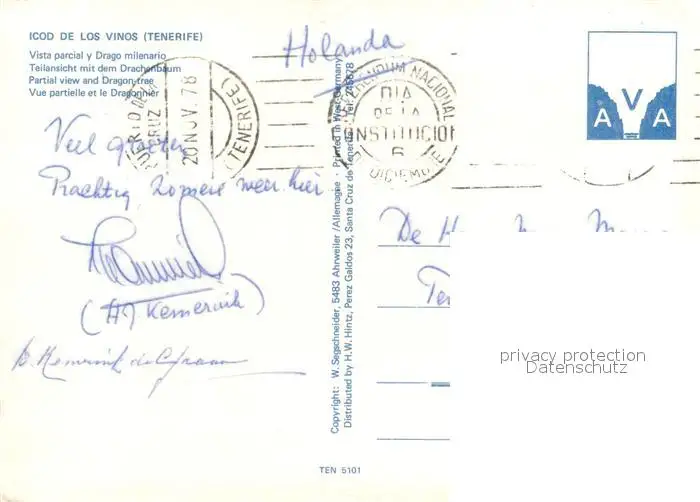 ICOD DE LOS VINOS (TENERIFE)
Vista parcial y Drago milenario
Teilansicht mit dem Drachenbaum
Partial view and Dragon tree
Vue partielle et le Dragonnier
Holanda
PUERTO DE
CRUZ
20 NOV. 78
(TENERIFE)
REFERENDUM NACIONAL
DIA
DE LA
CONSTITUCION
6
DICIEMBRE
A V A
Veel groeten
Prachtig zomers weer hier
(HJ Kemerink)
De H
Te
Copyright: W. Segschneider, 5483 Ahrweiler/Allemagne - Printed in West-Germany
Distributed by H.W. Hintz, Perez Galdos 23, Santa Cruz de Tenerife - Tel.
privacy protection
Datenschutz
TEN 5101